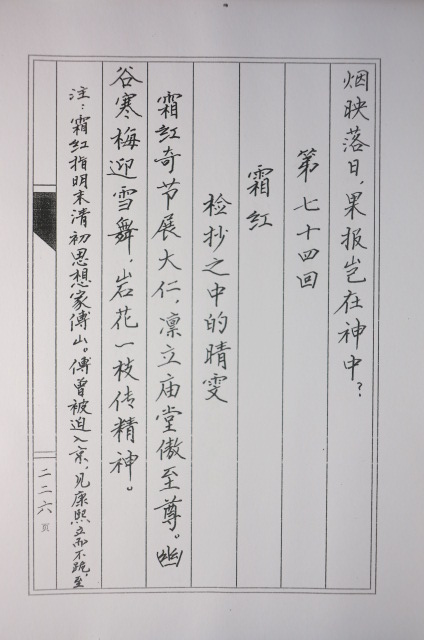 烟映落日，果报岂在神中？
第七十四回
霜红
检抄之中的晴雯
霜红奇节展大仁，凛立庙堂傲至尊。幽
谷寒梅迎雪舞，岩花一枝传精神。
注：霜红指明末清初思想家傅山。傅曾被迫入京，见康熙立而不跪，至
二二六页